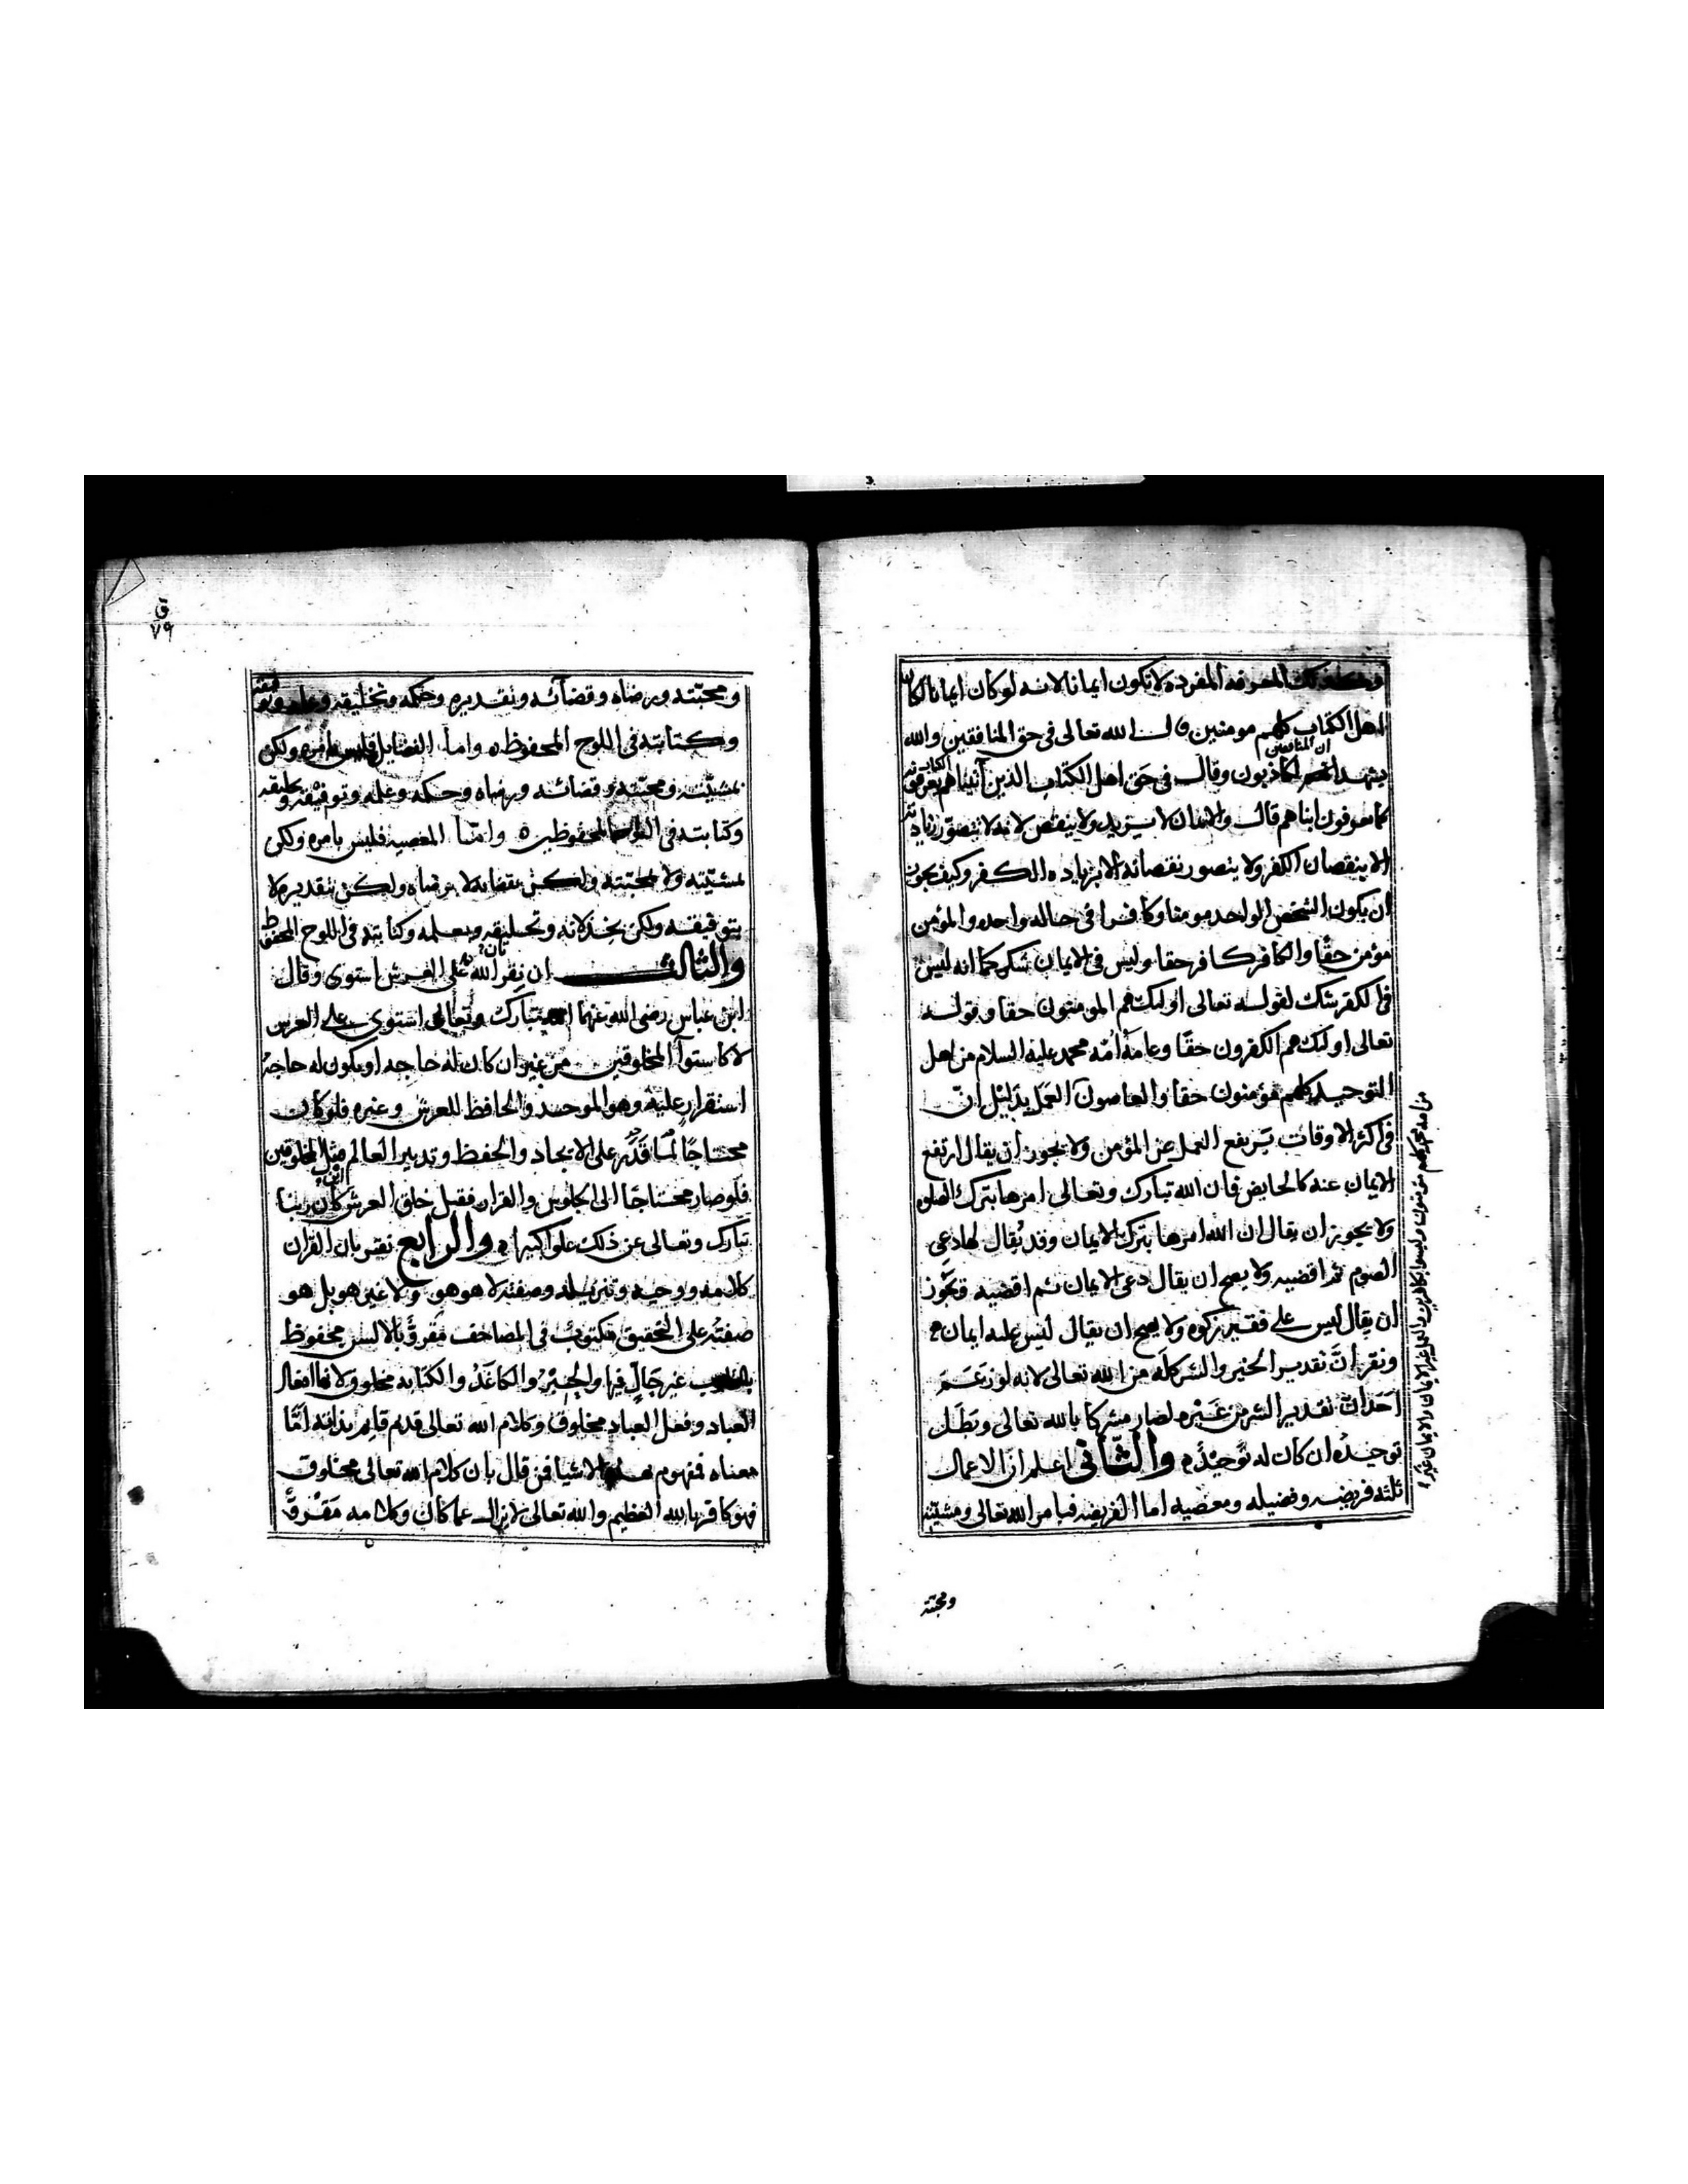 وكذلك المعرفه المفرده لا تكون ايمانا لانه لو كان ايمانا لكان
اهل الكتاب كلهم مومنين قال الله تعالى فى حق المنافقين والله
يشهد ان المنافقين لكاذبون وقال فى حق اهل الكتاب الذين آتيناهم الكتاب يعرفونه
كما يعرفون ابناهم قال والايمان لا يزيد ولا ينقص لانه لا يتصور زيادته
الا بنقصان الكفر ولا يتصور نقصانه الا بزياده الكفر وكيف يجوز
ان يكون الشخص الواحد مومنا وكافرا فى حاله واحده والمؤمن
مؤمن حقا والكافر كافر حقا وليس فى الايمان شك كما انه ليس
فى الكفر شك لقوله تعالى اولئك هم المومنون حقا وقوله
تعالى اولئك هم الكفرون حقا وعامة امّه محمد عليه السلام من اهل
التوحيد كلهم مؤمنون حقا والعاصون العمل بدليل انّ
فى اكثر الاوقات يرتفع العمل عن المؤمن ولا يجوز ان يقال ارتفع
الايمان عنه كالحايض فان الله تبارك وتعالى امرها بترك الصلوه
ولا يجوز ان يقال ان الله امرها بترك الايمان وقد يُقال لها دعى
الصوم ثم اقضيه ولا يصح ان يقال دعى الايمان ثم اقضيه ويجوز
ان يقال ليس على فقير زكوه ولا يصح ان يقال ليس عليه ايمان
ونقر انّ تقدير الخير والشر كله من الله تعالى لانه لو زعم
احد ان تقدير الشر من غيره لصار مشركا بالله تعالى وبطل
توحيده ان كان له توحيد والثانى اعلم ان الاعمال
ثلثه فريضه وفضيله ومعصيه اما الفريضه فبامر الله تعالى ومشيّته
ومحبّته
من امة محمد كلهم مؤمنون وليسوا بكافرين والعمل غير الايمان والايمان غير
ق
٧٩
ومحبّته ورضاه وقضائه وتقديره وحكمه وتخليقه وعلمه وتوفيقه
وكتابته فى اللوح المحفوظ واما الفضايل فليس بامره ولكن
بمشيّته ومحبّته وقضائه ورضاه وحكمه وعلمه وتوفيقه وتخليقه
وكتابته فى اللوح المحفوظ وامّا المعصيه فليس بامره ولكن
بمشيّته ولا بمحبّته ولكن بقضائه لا برضاه ولكن بتقديره لا
بتوفيقه ولكن بخذلانه وتخليقه وبعلمه وكتابته فى اللوح المحفوظ
والثالث ان نقر بان الله على العرش استوى وقال
ابن عباس رضى الله عنهما تبارك وتعالى استوى على العرش
لا كاستوآ المخلوقين من غير ان كان له حاجه او يكون له حاجة
استقرار عليه وهو الموحد والحافظ للعرش وغيره فلو كان
محتاجًا لما قدر على الايجاد والحفظ وتدبير العالم مثل المخلوقين
فلو صار محتاجًا الى الجلوس والقرار فقبل خلق العرش اين كان ربنا
تبارك وتعالى عن ذلك علوا كبيرا والرابع نقر بان القران
كلامه ووحيه وتنزيله وصفته لا هو هو ولا غير هو بل هو
صفته على التحقيق مكتوبٌ فى المصاحف مقروٌّ بالالسن محفوظ
بالقلوب غير حالّ فيها والحبر والكاغَذُ والكتابه مخلوق لانها افعال
العباد وفعل العباد مخلوق وكلام الله تعالى قديم قايم بذاته امّا
معناه فمفهوم بهذه الاشيا فمن قال بان كلام الله تعالى مخلوق
فهو كافر بالله العظيم والله تعالى لا يزال عما كان وكلامه مَقْروٌّ